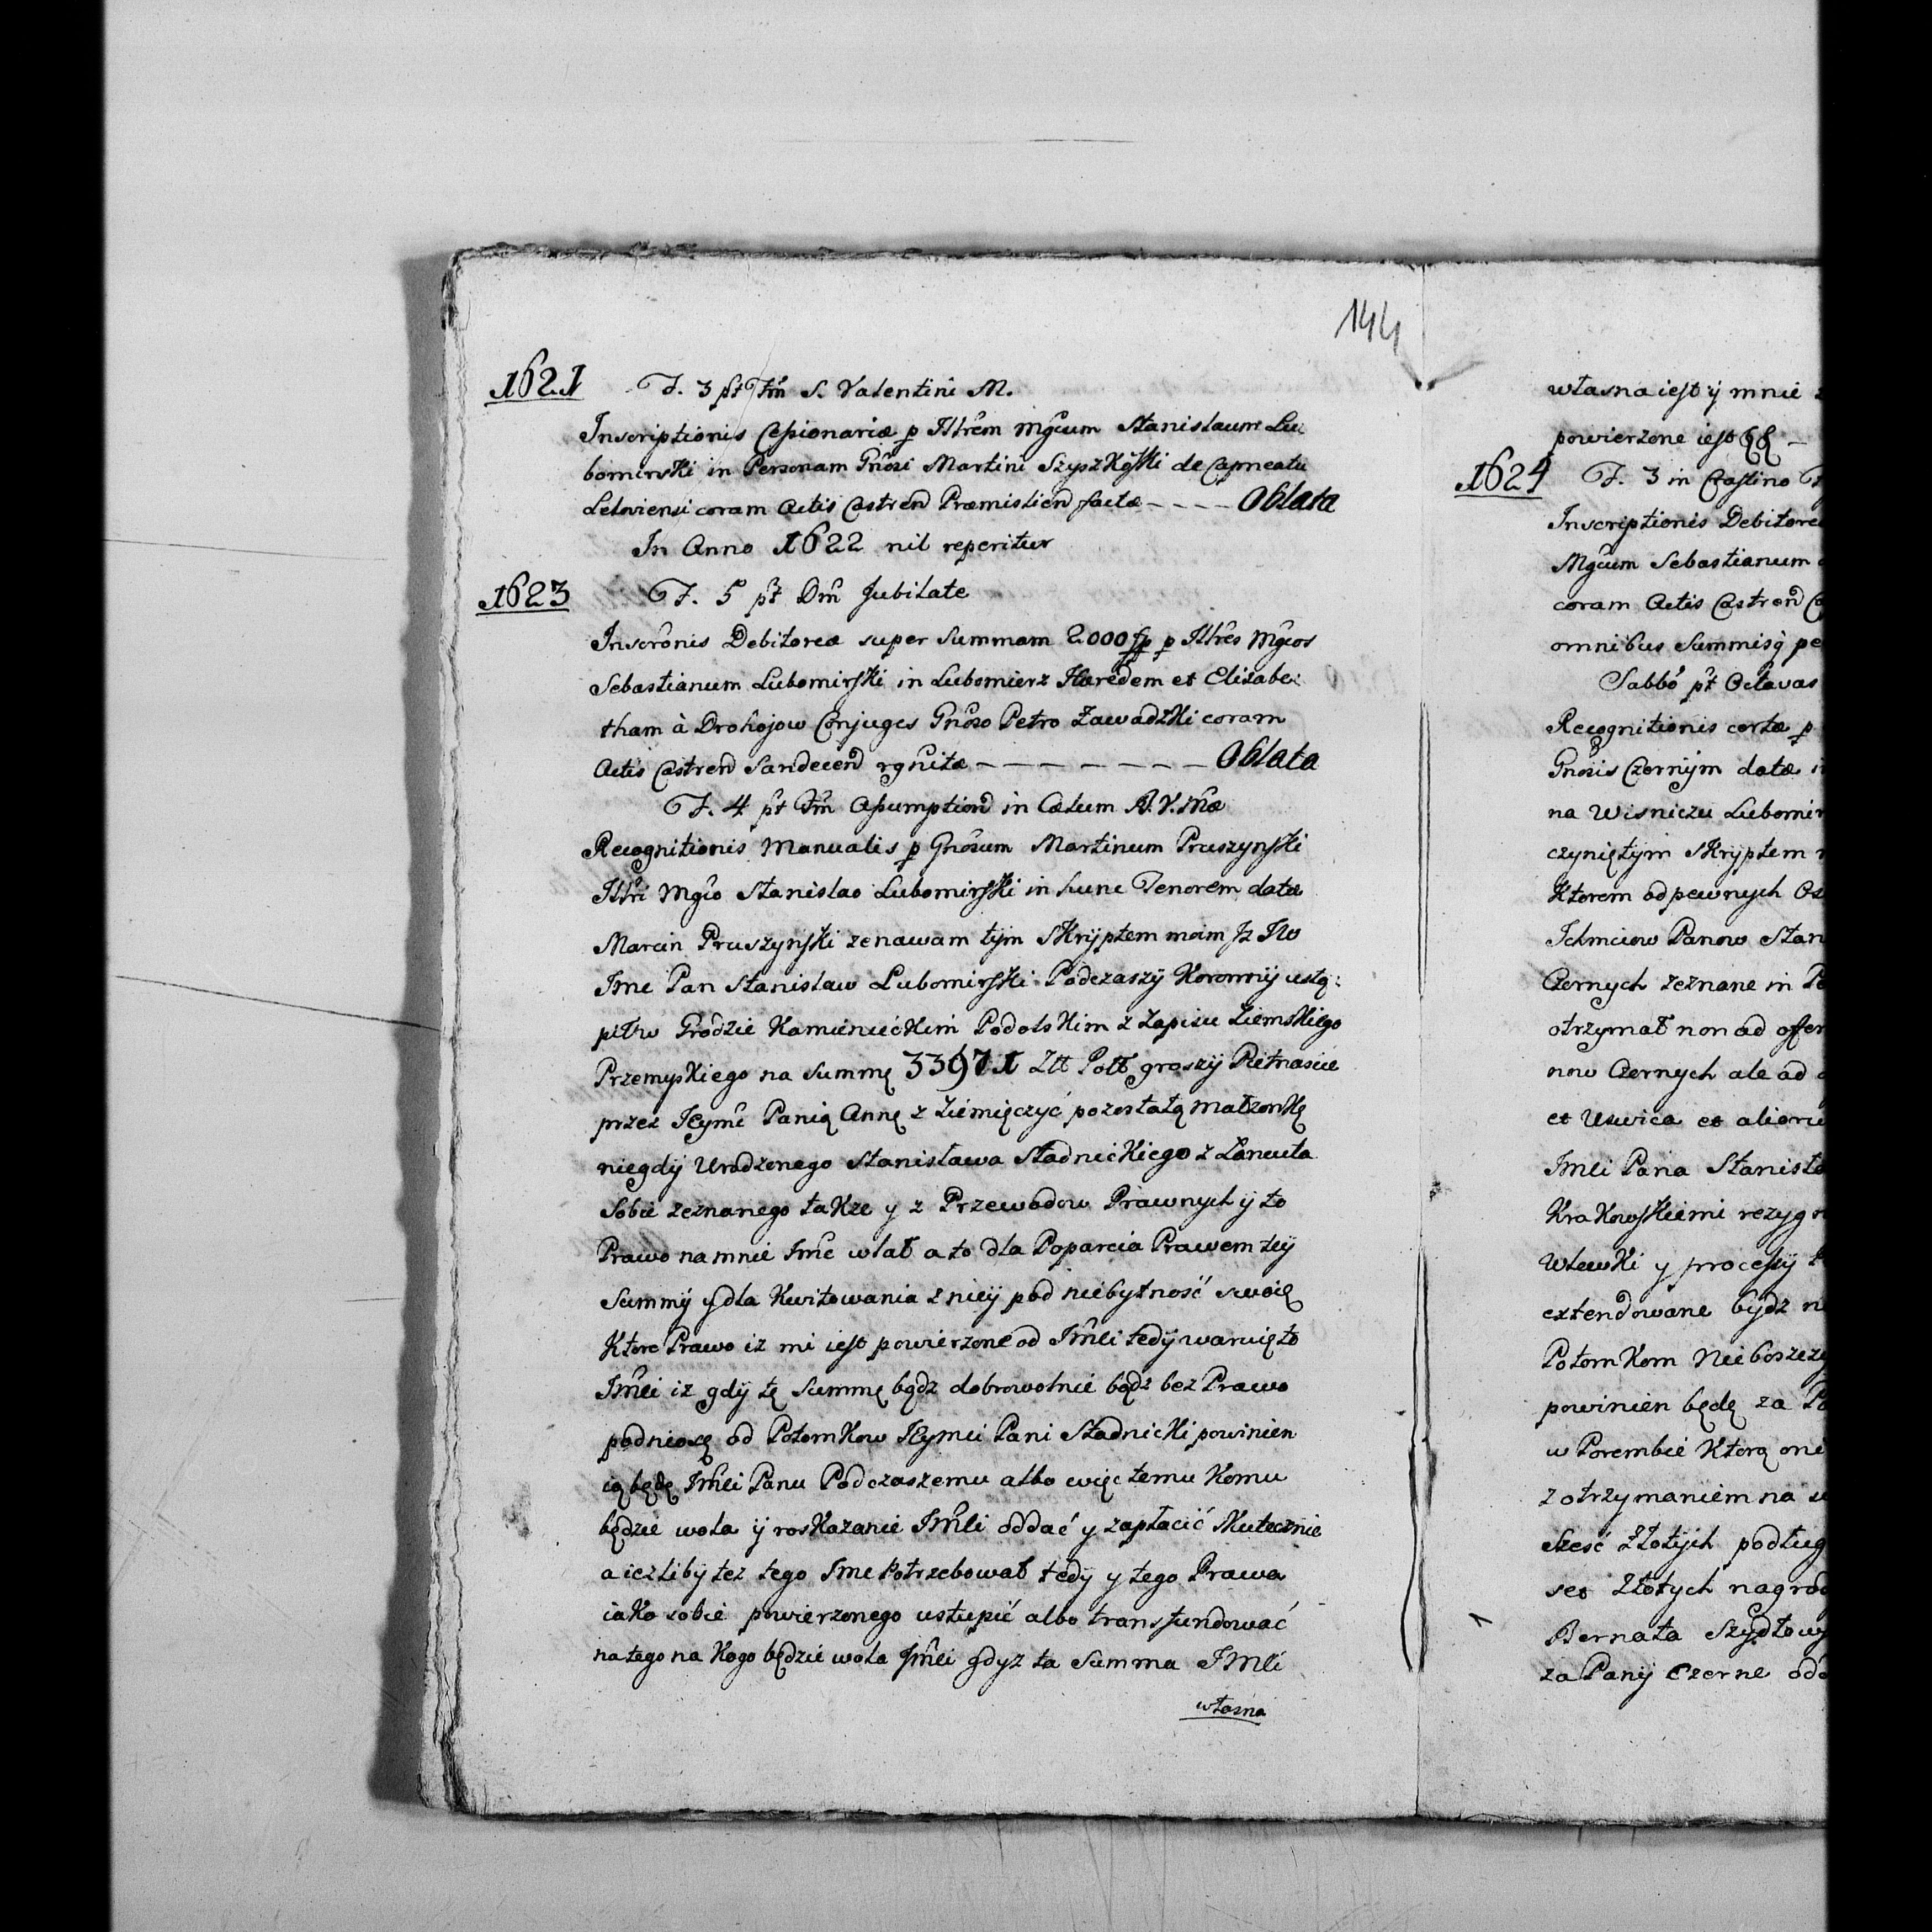 144
1621 F. 3 pt Fm S. Valentini M.
Inscriptionis Cessionariæ p Illrem Mgcum Stanislaum Lu:
bomirski in Personam Gnosi Martini Szyszkowski de Capneatu
Leloviensi coram Actis Castren Præmislien factæ - - - - Oblata
In Anno 1622 nil reperitur
1623 F. 5 pt Dm Jubilate
Inscronis Debitoreæ super Summam 2000 fp p Illres Mgcos
Sebastianum Lubomirski in Lubomierz Hæredem et Elisabe:
tham à Drohojow Conjuges Gnoso Petro Zawadzki coram
Actis Castren Sandecen rgnitæ - - - - - - - - Oblata
F. 4 pt Fm Assumption in Cælum B. V. Mæ
Recognitionis Manualis p Gnosum Martinum Pruszynski
Illri Mgco Stanislao Lubomirski in hunc Tenorem datæ
Marcin Pruszynski zenawam tym skryptem moim Jz
Jmc Pan Stanislaw Lubomirski Podczaszy Koronny ustą:
pił w Grodzie Kamienieckim Podolskim z Zapisu Ziemskiego
Przemyskiego na Summę 33971 Złł Poll groszy Pietnascie
przez Jeymc Panią Annę z Ziemięczyć pozostałą małzonkę
niegdy Urodzonego Stanisława Stadnickiego z Lancuta
Sobie zeznanego takze y z Przewodow Prawnych y to
Prawo na mnie Jmc wlał a to dla Poparcia Prawem tey
Summy y dla Kwitowania z niey pod niebytność swoię
Ktore Prawo iz mi iest powierzone od Jmci tedy waruię to
Jmci iz gdy tę Summę bądz dobrowolnie bądz bez Prawo
podniosę od Potomkow Jeymci Pani Stadnicki powinien
ią będę Jmci Panu Podczaszemu albo więc temu Komu
będzie wola y roskazanie Jmci oddać y zapłacić skutecznie
a iezliby tez tego Jmc Potrzebował tedy y tego Prawa
iako sobie powierzonego ustupić albo transfundować
na tego na Kogo będzie wola Jmci gdyz ta Summa Jmci
własna
własna iest y mnie
powierzone iest
1624 F. 3 in Crastino
Inscriptionis Debitoreæ
Mgcum Sebastianum
coram Actis Castren
omnibus Summisq
Sabbo pt Octavas
Recognitionis certæ p
Gnosis Czernym datæ
na Wisniczu Lubomir
czynię tym skryptem
Ktorem od pewnych
Ichmciow Panow Stan
Czernych zeznane in
otrzymał non ad
now Czernych ale ad
et Uswica et alioru
Jmci Pana Stanisła
Krakowskiemi rezygn
Wlewki y processy
extendowane bydz
Potomkom Nieboszczy
powinien będę za
w Porembie Ktorą oni
z otrzymaniem na
Szesc Złotych podług
set Złotych nagrod
Bernata Szydłow
za Pany Czerne